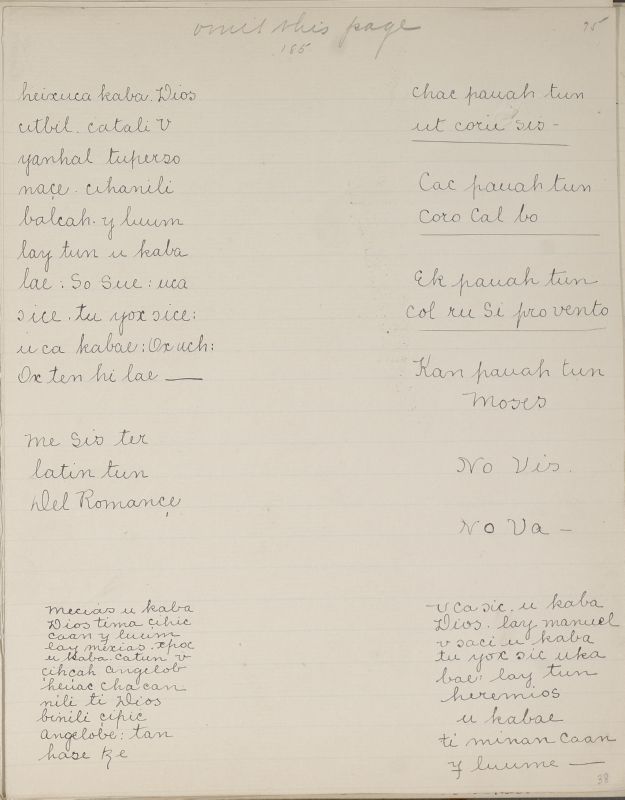 omit this page
75
165
heixuca kaba. Dios
citbil. catali V
yanhal tuperso
naçe. cihanili
balcah. y luum
lay tun u kaba
lae: So Sue: uca
sice. tu yox sice:
u ca kabae: Ox uch:
Ox ten hi lae —
Me Sis ter
latin tun
Del Romançe
Mecias u kaba
Dios tima çihic
caan y luum
lay mexias. xpoc
u kaba. catun v
çihçah angelob
heuac cha can
nili ti Dios
binili çipic
angelobe: tan
hase
chac pauah tun
ut coriu sis -
Cac pauah tun
Coro Cal bo
Ek pauah tun
Col ru Si provento
Kan pauah tun
Moses
No Vis.
No Va -
v ca sic. u kaba
Dios. lay manuel
v saci u kaba
tu yox sic uka
bae: lay tun
heremios
u kabae
ti minan caan
y luume —
38